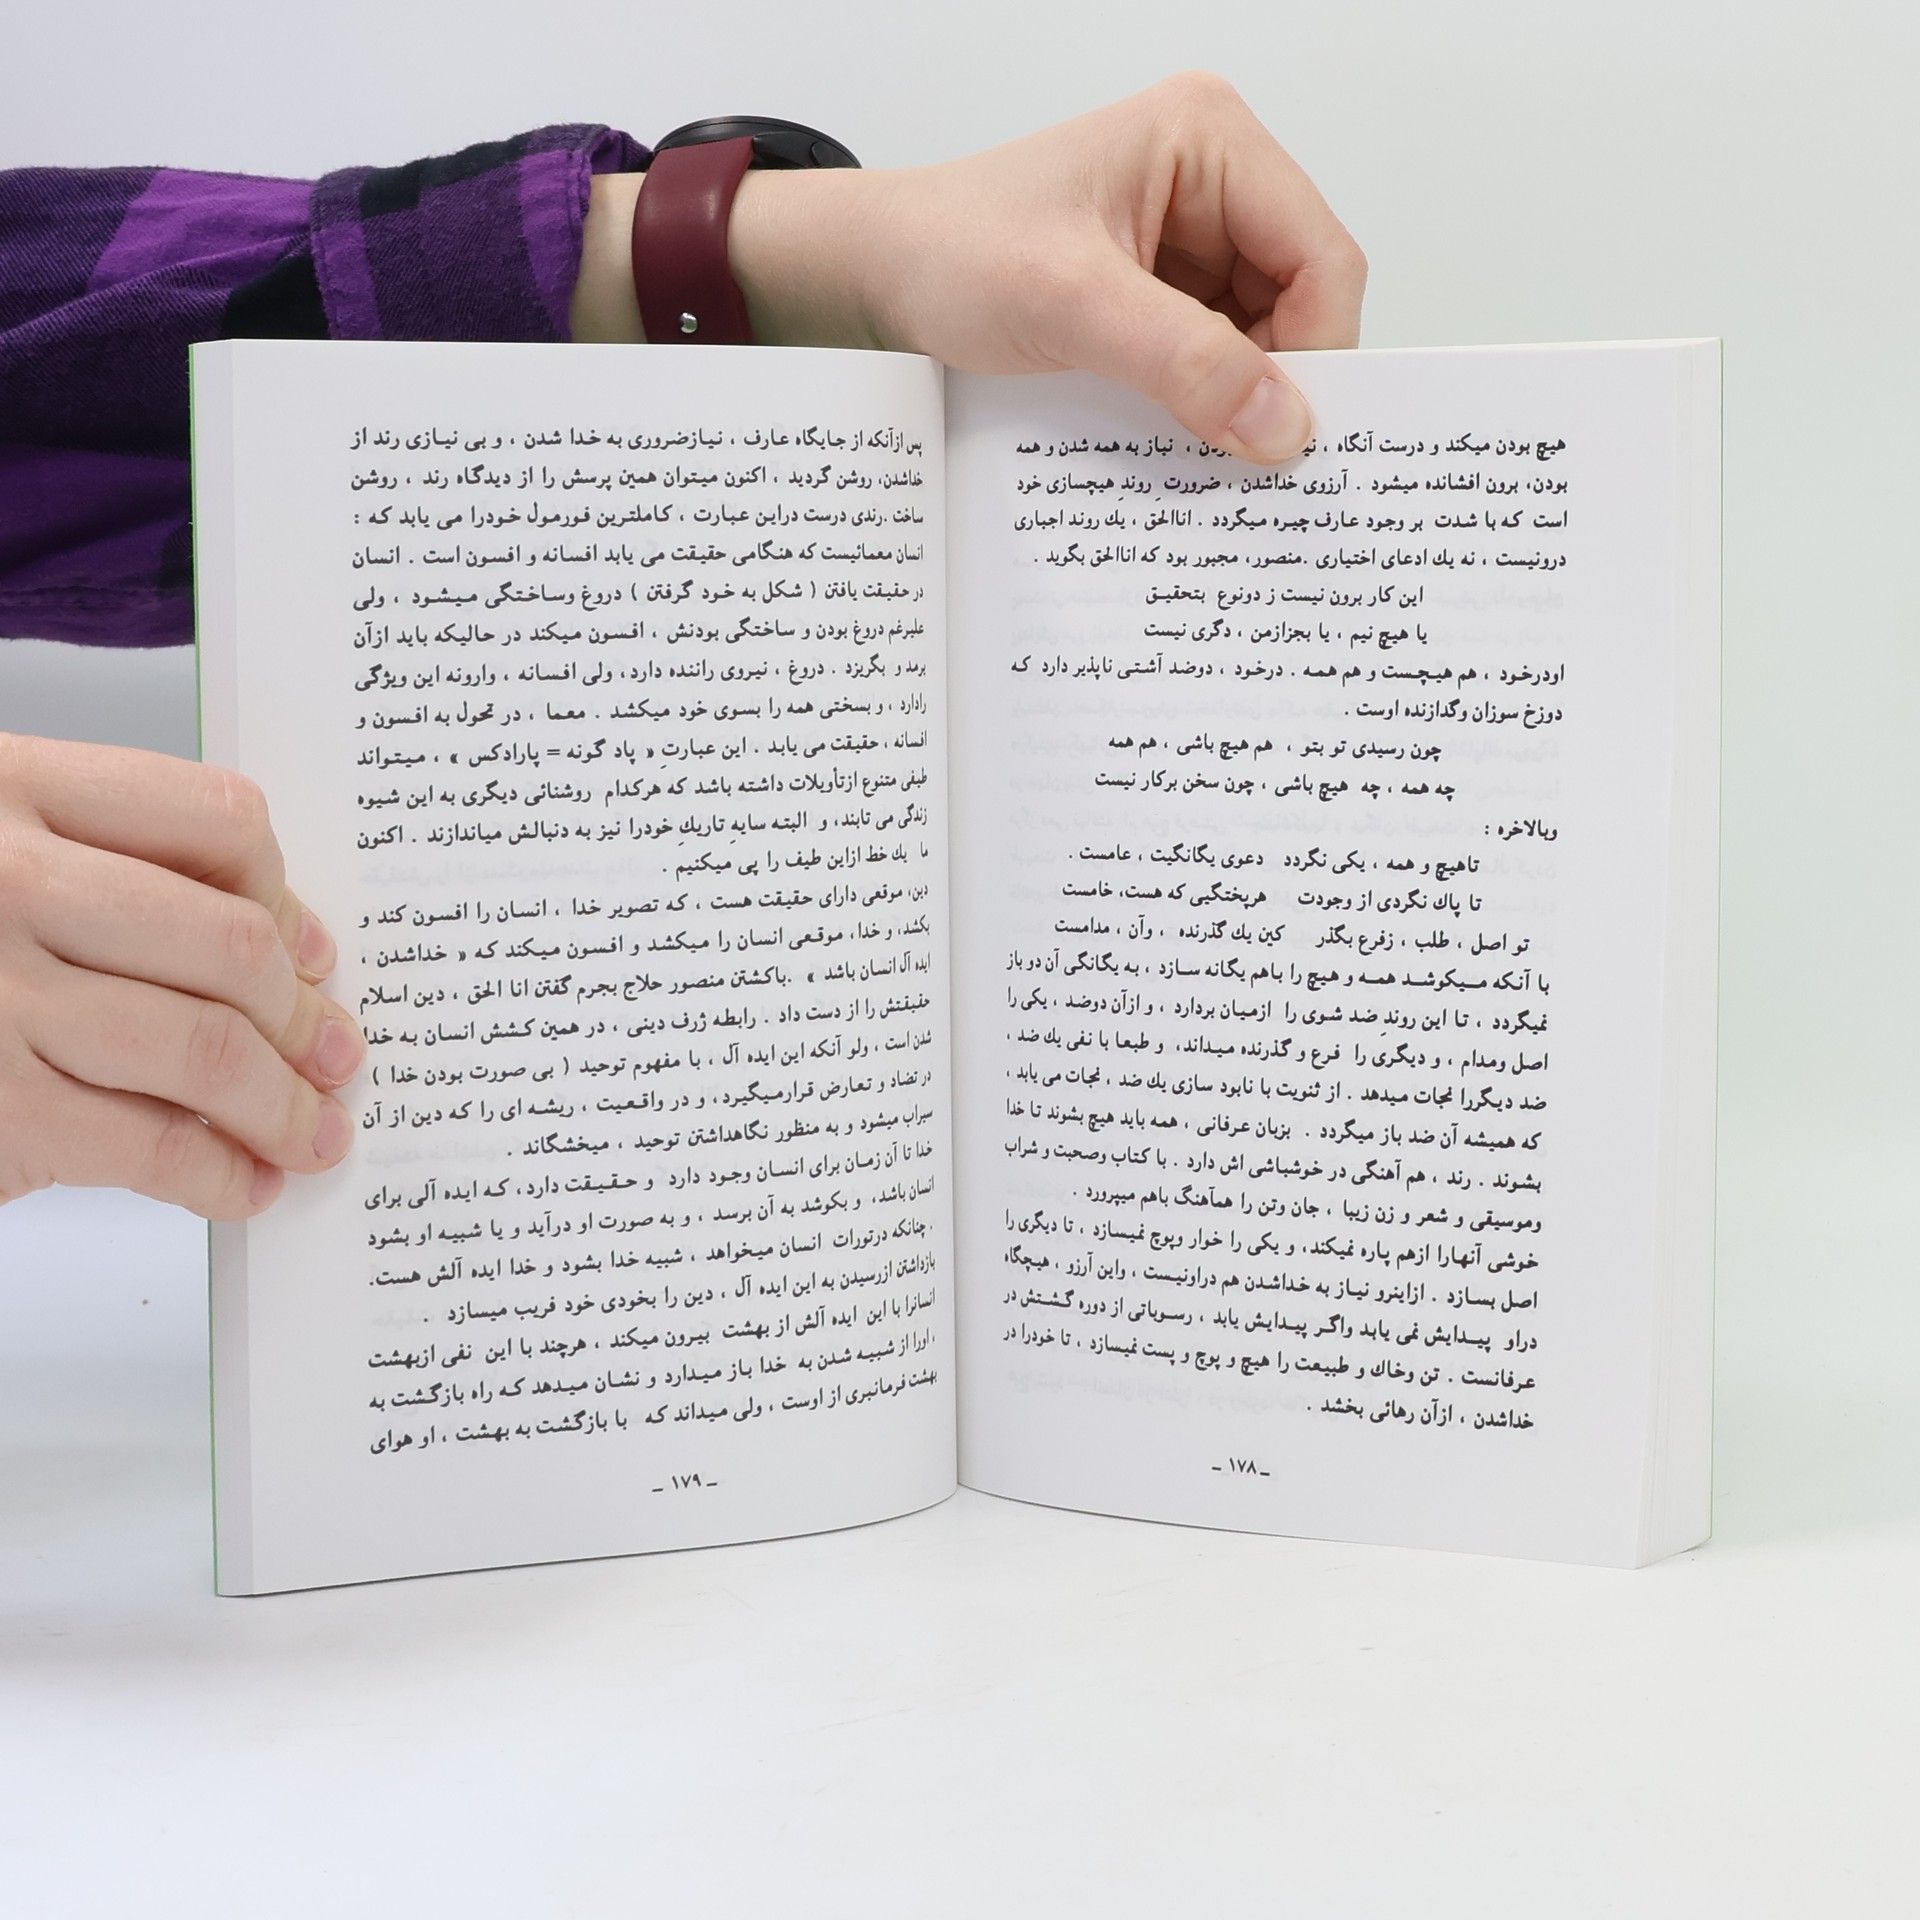 هیچ بودن میکند و درست آنگاه ، نیاز به همه شدن و همه
بودن، برون افشانده میشود . آرزوی خداشدن ، ضرورت ِ روندِ هیچسازی خود
است که با شدت بر وجود عارف چیره میگردد . اناالحق ، یك روند اجباری
درونیست ، نه یك ادعای اختیاری .منصور، مجبور بود که اناالحق بگوید .
این کار برون نیست ز دونوع بتحقیـق
یا هیچ نیم ، یا بجزازمن ، دگری نیست
اودرخـود ، هم هیـچـست و هم همـه . درخـود ، دوضد آشـتـی ناپذیر دارد که
دوزخ سوزان وگدازنده اوست .
چون رسیدی تو بتو ، هم هیچ باشی ، هم همه
چه همه ، چه هیچ باشی ، چون سخن برکار نیست
وبالاخره :
تاهیچ و همه ، یکی نگردد دعوی یگانگیت ، عامست .
تا پاك نگردی از وجودت هرپختگیی که هست، خامست
تو اصل ، طلب ، زفرع بگذر کین یك گذرنده ، وآن ، مدامست
با آنکه مـیـکوشـد همـه و هیچ را باهم یگانه سـازد ، به یگانگی آن دو باز
نمیگردد ، تـا این روندِ ضد شوی را ازمیان بردارد ، و ازآن دوضد ، یکی را
اصل ومدام ، و دیگری را فرع و گذرنده میداند، و طبعا با نفی یك ضد ،
ضد دیگررا نجات میدهد . از ثنویت با نابود سازی یك ضد ، نجات می یابد ،
که همیشه آن ضد باز میگردد . بزبان عرفانی ، همه باید هیچ بشوند تا خدا
بشوند . رند ، هم آهنگی در خوشباشی اش دارد . با کتاب وصحبت و شراب
وموسیقی و شعر و زن زیبا ، جان وتن را همآهنگ باهم میپرورد .
خوشی آنهارا ازهم پاره نمیکند، و یکی را خوار وپوچ نمیسازد ، تا دیگری را
اصل بسـازد . ازاینرو نیـاز به خداشدن هم دراونیست ، واین آرزو ، هیچگاه
دراو پیـدایش نمی یابد واگر پیـدایش یابد ، رسـوباتی از دوره گـشـتش در
عرفانست . تن وخاك و طبیعت را هیچ و پوچ و پست نمیسازد ، تا خودرا در
خداشدن ، ازآن رهائی بخشد .
ـ ۱۷۸ ـ
پس ازآنکه از جایگاه عارف ، نیـازضروری به خدا شدن ، و بی نیـازی رند از
خداشدن، روشن گردید ، اکنون میتوان همین پرسش را از دیدگاه رند ، روشن
ساخت .رندی درست دراین عبارت ، کاملترین فورمول خودرا می یابد که :
انسان معمائیست که هنگامی حقیقت می یابد افسانه و افسون است . انسان
در حقیقت یافتن ( شکل به خود گرفتن ) دروغ وساخـتگی میـشود ، ولی
علیرغم دروغ بودن و ساختگی بودنش ، افسون میکند در حالیکه باید ازآن
برمد و بگریزد . دروغ ، نیروی راننده دارد، ولی افسانه ، وارونه این ویژگی
رادارد ، و بسختی همه را بسوی خود میکشد . معما ، در تحول به افسون و
افسانه ، حقیقت می یابد . این عبارتِ « پاد گونه = پارادکس » ، میـتواند
طیفی متنوع ازتأویلات داشته باشد که هرکدام روشنائی دیگری به این شیوه
زندگی می تابند، و البته سایهِ تاریكِ خودرا نیز به دنبالش میاندازند . اکنون
ما یك خط ازاین طیف را پی میکنیم .
دین، موقعی دارای حقیقت هست ، که تصویر خدا ، انسان را افسون کند و
بکشد، و خدا، موقعی انسان را میکشد و افسون میکند که « خداشدن ،
ایده آل انسان باشد » .باکشتن منصور حلاج بجرم گفتن انا الحق ، دین اسلام
حقیقتش را از دست داد . رابطه ژرف دینی ، در همین کشش انسان به خدا
شدن است ، ولو آنکه این ایده آل ، با مفهوم توحید ( بی صورت بودن خدا )
در تضاد و تعارض قرارمیگیرد، و در واقعیت ، ریشه ای را که دین از آن
سیراب میشود و به منظور نگاهداشتن توحید ، میخشگاند .
خدا تا آن زمان برای انسان وجود دارد و حـقـیـقت دارد، که ایده آلی برای
انسان باشد، و بکوشد به آن برسد ، و به صورت او درآید و یا شبیه او بشود
. چنانکه درتورات انسان میخواهد ، شبیه خدا بشود و خدا ایده آلش هست.
بازداشتن ازرسیدن به این ایده آل ، دین را بخودی خود فریب میسازد .
انسانرا با این ایده آلش از بهشت بیرون میکند ، هرچند با این نفی ازبهشت
، اورا از شبیه شدن به خدا باز میدارد و نشان میدهد که راه بازگشت به
بهشت فرمانبری از اوست ، ولی میداند که با بازگشت به بهشت ، او هوای
ـ ۱۷۹ ـ